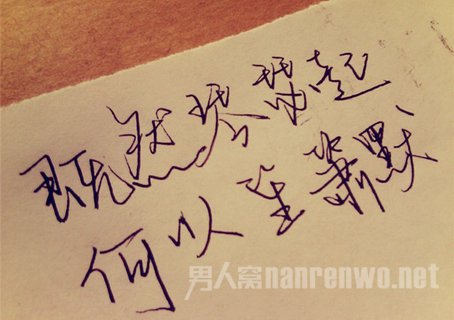 既然琴瑟起
何以笙箫默
男人窝nanrenwo.net